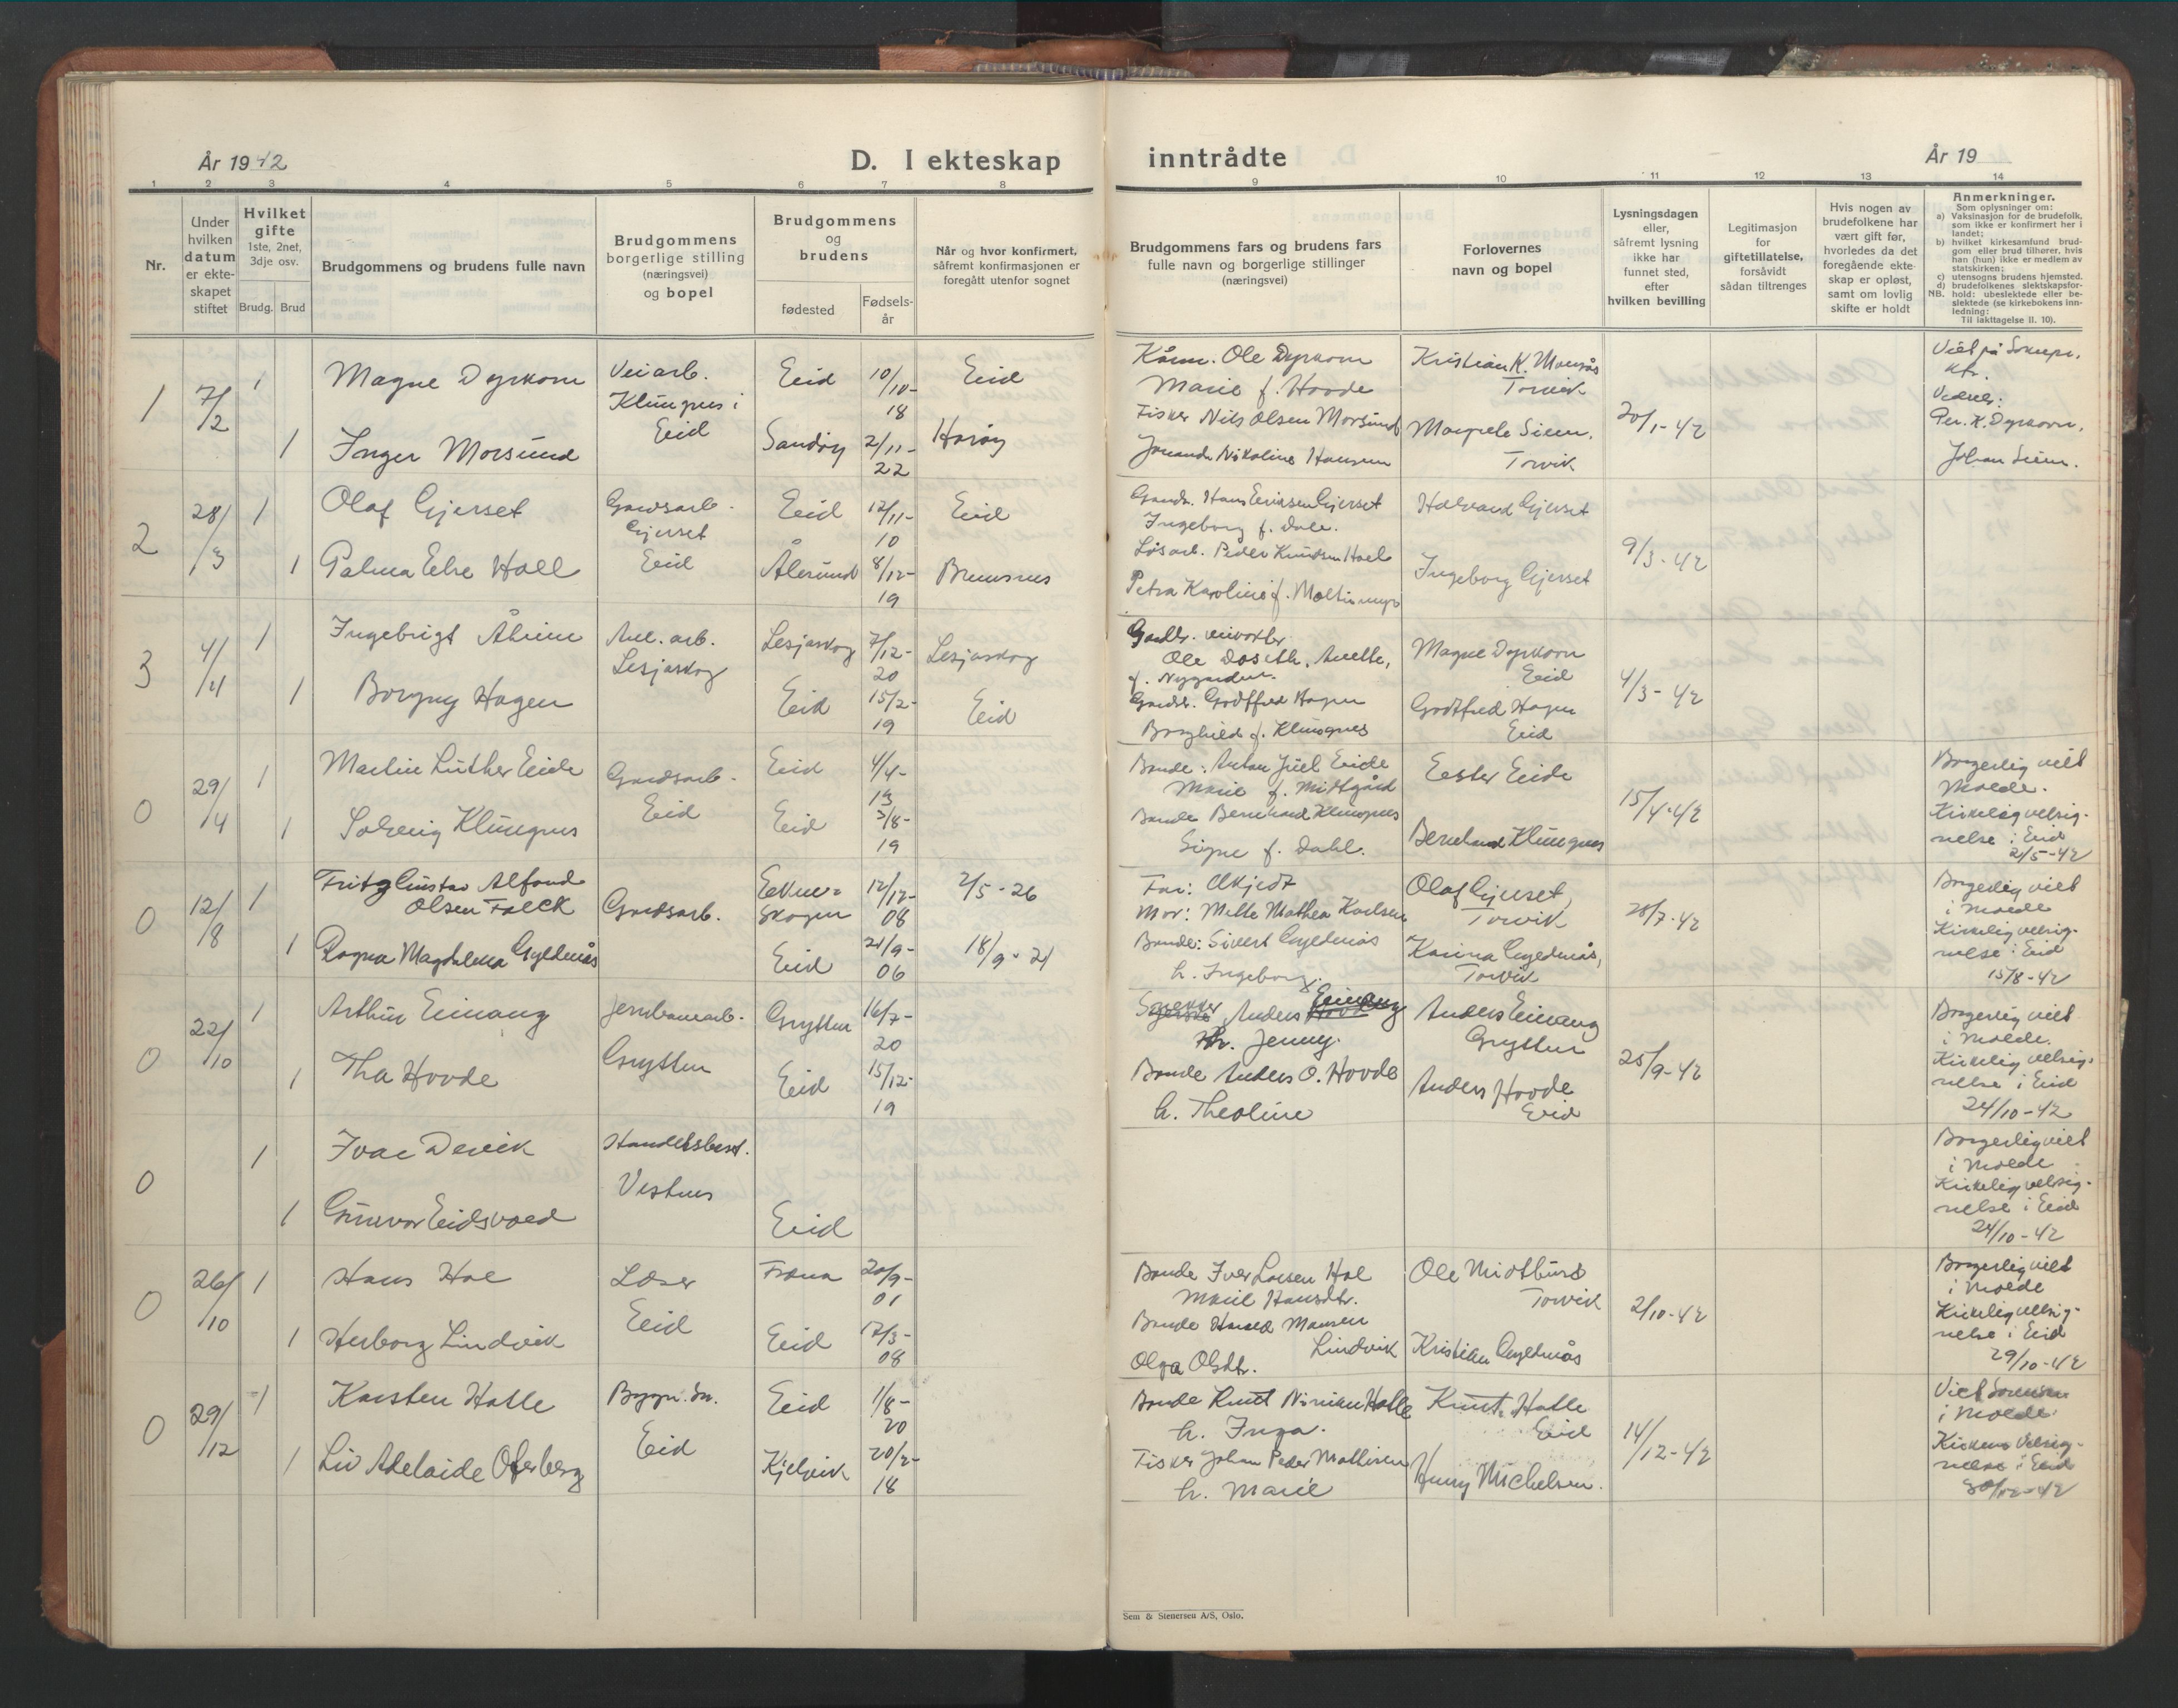 År 1942
D. I ekteskap
inntrådte
År 19
1 2 3 4 5 6 7 8
9 10 11 12 13 14
Nr.
Under
hvilken
datum
er ekte-
skapet
stiftet
Hvilket
gifte
1ste, 2net,
3dje osv.
Brudg. Brud
Brudgommens og brudens fulle navn
Brudgommens
borgerlige stilling
(næringsvei)
og bopel
Brudgommens
og
brudens
fødested
Fødsels-
år
Når og hvor konfirmert,
såfremt konfirmasjonen er
foregått utenfor sognet
Brudgommens fars og brudens fars
fulle navn og borgerlige stillinger
(næringsvei)
Forlovernes
navn og bopel
Lysningsdagen
eller,
såfremt lysning
ikke har
funnet sted,
efter
hvilken bevilling
Legitimasjon
for
giftetillatelse,
forsåvidt
sådan tiltrenges
Hvis nogen av
brudefolkene har
vært gift før,
hvorledes da det
foregående ekte-
skap er opløst,
samt om lovlig
skifte er holdt
Anmerkninger.
Som oplysninger om:
a) Vaksinasjon for de brudefolk,
som ikke er konfirmert her i
landet;
b) hvilket kirkesamfund brud-
gom eller brud tilhører, hvis
han (hun) ikke er medlem av
statskirken;
c) utensogns brudens hjemsted.
d) brudefolkenes slektskapsfor-
NB. hold: ubeslektede eller be-
slektede (se kirkebokens inn-
ledning:
Til iakttagelse II. 10).
1
7/2
1
Magne Dyrkorn
Veiarb.
Klungnes i
Eid
Eid
10/10-
18
Eid
1
Inger Morsund
Sandøy
2/11-
22
Harøy
Ole Dyrkorn
Marie f. Hovde
Fisker Nils Olsen Morsund
Nikoline Hansen
Kristian K.
Torvik
Torvik
20/1-42
Viet på
Per. K. Dyrkorn,
Johan
2
28/3
1
Olaf Gjerset
Gardsarb.
Gjerset
Eid
Eid
12/11-
10
Eid
1
Palma Else Holl
Ålesund
8/12-
19
Bremsnes
Gardbr. Hans Eriksen Gjerset
Ingeborg f. Dale.
Løsarb. Peder Knudsen
Petra Karoline f.
Halvard Gjerset
Ingeborg Gjerset
9/3-42
3
4/4
1
Ingebrigt Åheim
Anl. arb.
Lesjaskog
Lesjaskog
7/12-
20
Lesjaskog
1
Borgny Hagen
Eid
15/2-
19
Eid
Gardbr.
Ole
f. Nygarden.
Gardbr. Godtfred Hagen
Borghild f. Klungnes
Magne Dyrkorn
Eid
Godtfred Hagen
Eid
4/3-42
0
29/4
1
Martin Luther Eide
Gardsarb.
Eid
Eid
4/4-
13
1
Solveig Klungnes
Eid
3/8-
19
Bonde: Anton Juel Eide
Marie f. Midtgård
Bonde Bernhard Klungnes
Signe f. Dahl.
Ester Eide
Bernhard Klungnes
15/4-42
Borgerlig viet
Molde.
Kirkelig velsig-
nelse i Eid
2/5-42
0
12/8
1
Fritz Gustav Alfond
Olsen Falck
Gardsarb.
skogen
12/12-
08
2/5-26
1
Ragna Magdalena Gyldenås
Eid
21/9-
06
18/9-21
Far: Ukjedt
Mor: Mille Mathea Karlsen
Bonde: Sivert Gyldenås
h. Ingeborg.
Olaf Gjerset,
Torvik
Karina Gyldenås,
Torvik
28/7-42
Borgerlig viet
i Molde
Kirkelig velsig-
nelse i Eid
15/8-42
0
22/10
1
Arthur Einang
Jernbanearb.
Grytten
Grytten
16/7-
20
1
Tha Hovde
Eid
15/12-
19
Anders Einang
h. Jenny.
Bonde Anders O. Hovde
h. Theoline
Anders Einang
Grytten
Anders Hovde
Eid
25/9-42
Borgerlig viet
i Molde.
Kirkelig velsig-
nelse i Eid
24/10-42
0
1
Ivar Devik
Handelsbest.
Vestnes
1
Gunvor Eidsvold
Eid
Borgerlig viet
i Molde
Kirkelig velsig-
nelse i Eid
24/10-42
0
26/10
1
Hans Hol
Læser
Eid
Fræna
20/9-
01
1
Herborg Lindvik
Eid
17/3-
08
Bonde Iver Larsen Hol
Marie Hansdtr.
Bonde Harald Monsen
Lindvik
Olga Olsdtr.
Ole Midtbust
Torvik
Kristian Gyldenås
2/10-42
Borgerlig viet
i Molde
Kirkelig velsig-
nelse i Eid
29/10-42
0
29/12
1
Karsten Hatle
Bygn. sn.
Eid
Eid
1/8-
20
1
Liv Adelaide Oferberg
Kjelvik
20/2-
18
Bonde Knut Nirian Hatle
h. Inga.
Fisker Johan Peder Mathisen
h. Marie
Knut Hatle
Eid
Henry Michelsen.
14/12-42
Viet
i Molde.
Kirkens Velsig-
nelse i Eid
30/12-42
Sem & Stenersen A/S, Oslo.